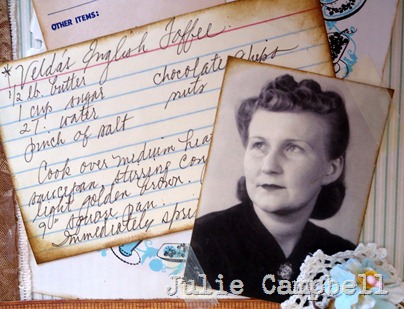 OTHER ITEMS:
* Velda's English Toffee.
1/2 lb. butter
chocolate chips
1 cup sugar
nuts
2 T. water
pinch of salt
Cook over medium heat
saucepan stirring con
light golden brown.
9" square pan.
Immediately spri
Julie Campbell